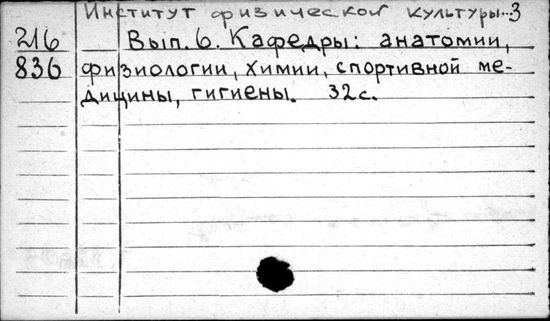 Институт физической культуры...3
216 Вып. 6. Кафедры: анатомии,
836 физиологии, химии, спортивной ме-
дицины, гигиены. 32 с.